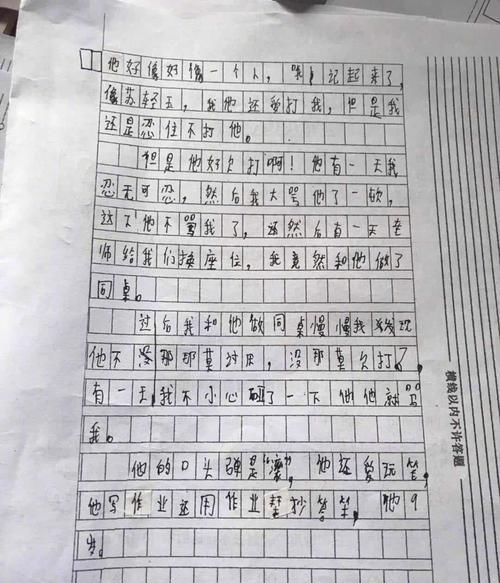 他好像好像一个人，记起来了，
像苏轻玉，我他还爱打我，但是我
还是忍住不打他。
但是他好欠打啊！他有一天我
忍无可忍，然后我大骂他了一软，
这下他不骂我了，还然后有一天老
师给我们换座位，我竟然和他做了
同桌。
过后我和他做同桌慢慢我发现
他不没那那莫讨厌，没那莫欠打了，
有一天我不小心碰了一下他他就骂
我。
他的口头弹是“滚”，他还爱玩笔，
他写作业还用作业帮抄答案，他9
岁。
横线以内不许答题